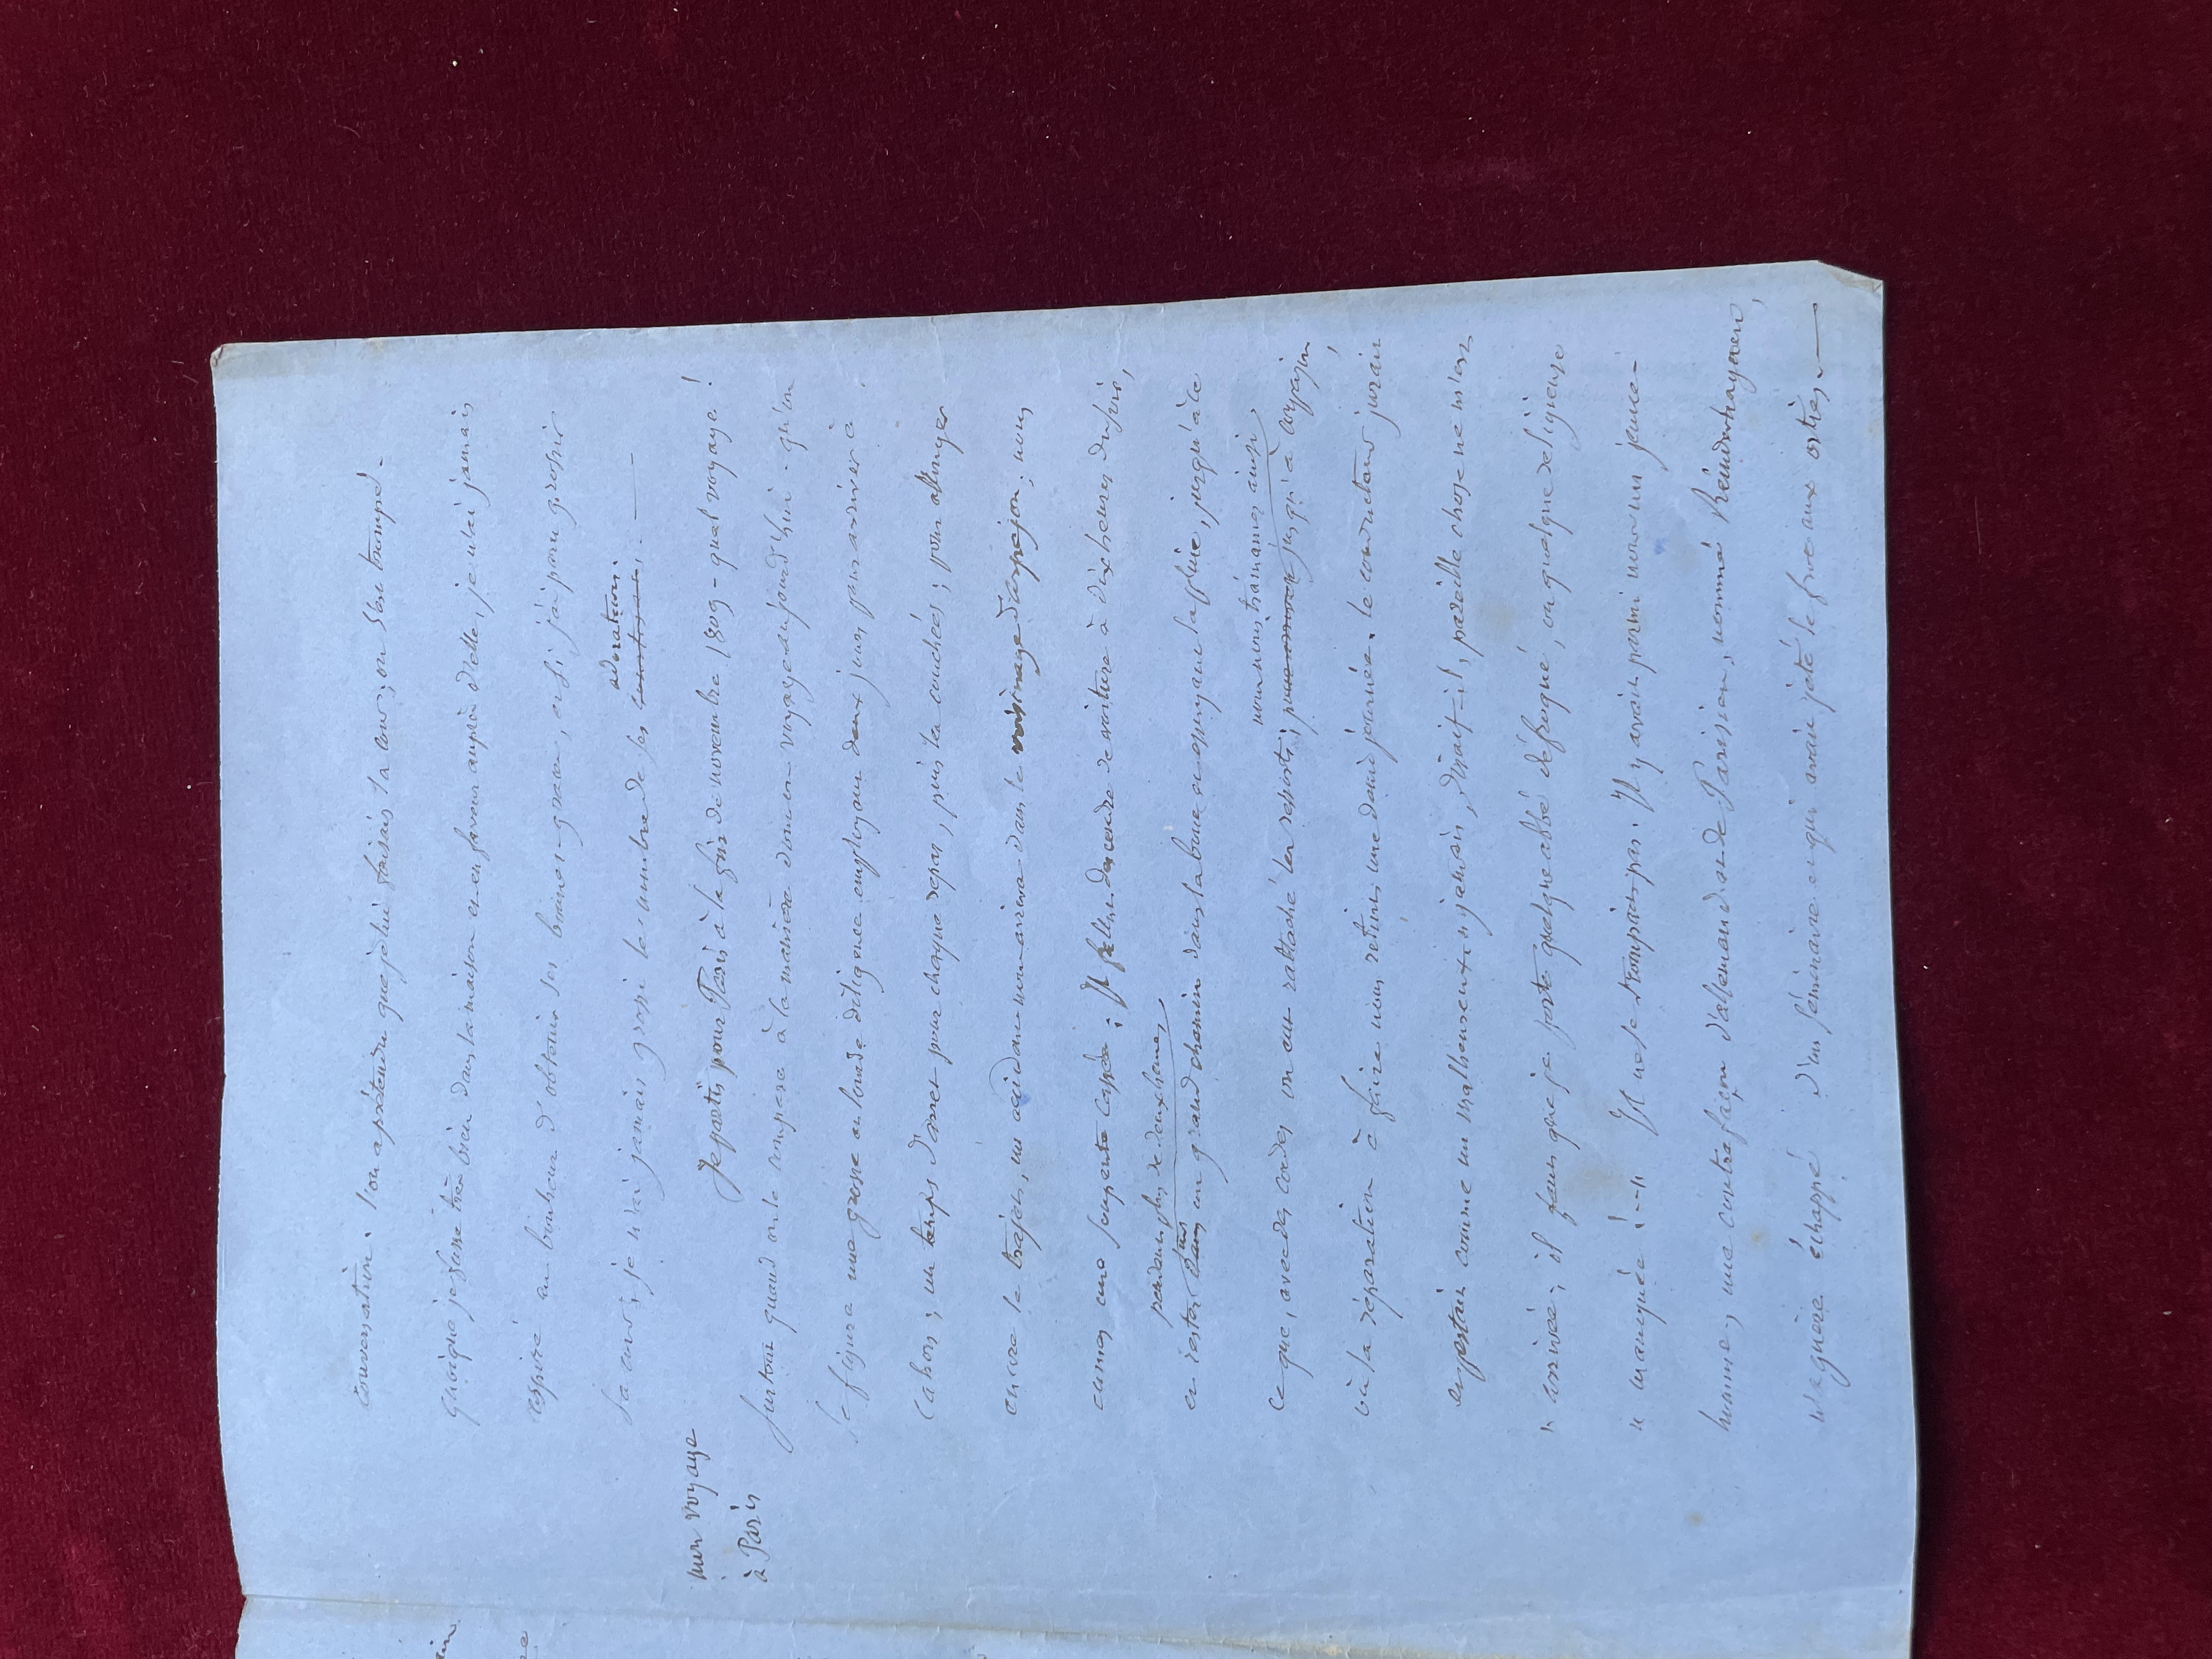 conversation. l'on a prétendu que je lui faisais la cour; on s'est trompé.
quoique je fusse très bien dans la maison et en faveur auprès d'elle, je n'ai jamais
aspiré au bonheur d'obtenir ses bonnes-graces, et si j'ai paru grossir
sa cour, je n'ai jamais grossi le nombre de ses
adoration.
mon voyage
à Paris
Je partis pour Paris à la fin de novembre 1809 - quel voyage!
surtout quand on le compare à la manière dont on voyage aujourd'hui - qu'on
se figure une grosse et lourde diligence employant deux jours pour arriver à
Cahors; un temps d'arrêt pour chaque repas, puis la couchée; pour allonger
encore le trajet, un accident nous arriva dans le voisinage d'arpajon; nous
eumes une soupente cassée. Il fallut descendre de voiture à dix heures du soir,
pendant plus de deux heures
et rester dans sur un grand chemin dans la boue et essuyant la pluie, jusqu'à ce
nous nous trainames ainsi
ce que, avec des cordes on eut rattaché les ressorts; jusqu'à arpajon,
où la réparation à faire nous retint une demi journée. le conducteur jurait
empestait comme un malheureux "jamais, disait-il, pareille chose ne m'est
" arrivée; il faut que je porte quelque abbé défroqué, ou quelque religieuse
" manquée !--" Il ne se trompait pas: Il y avait parmi nous un jeune-
homme, une contrefaçon d'allemand et de Parisien, nommé
naguère échappé d'un séminaire et qui avait jeté le froc aux orties.